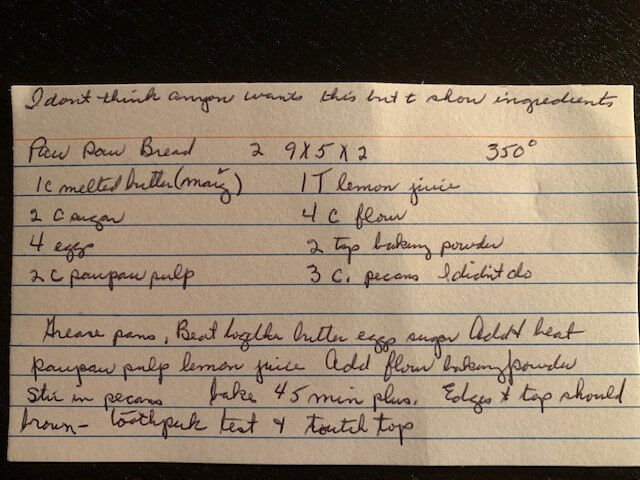 I dont think anyon wants this but t show ingredients
Paw Paw Bread 2 9X5X2 350°
1c melted butter (marg) 1T lemon juice
2 C sugar 4 C flour
4 eggs 2 tsp baking powder
2 C pawpaw pulp 3 C. pecans I didn't do
Grease pans, Beat together butter eggs sugar Add & beat
pawpaw pulp lemon juice Add flour baking powder
Stir in pecans bake 45 min plus. Edges & top should
brown - toothpick test & touch top